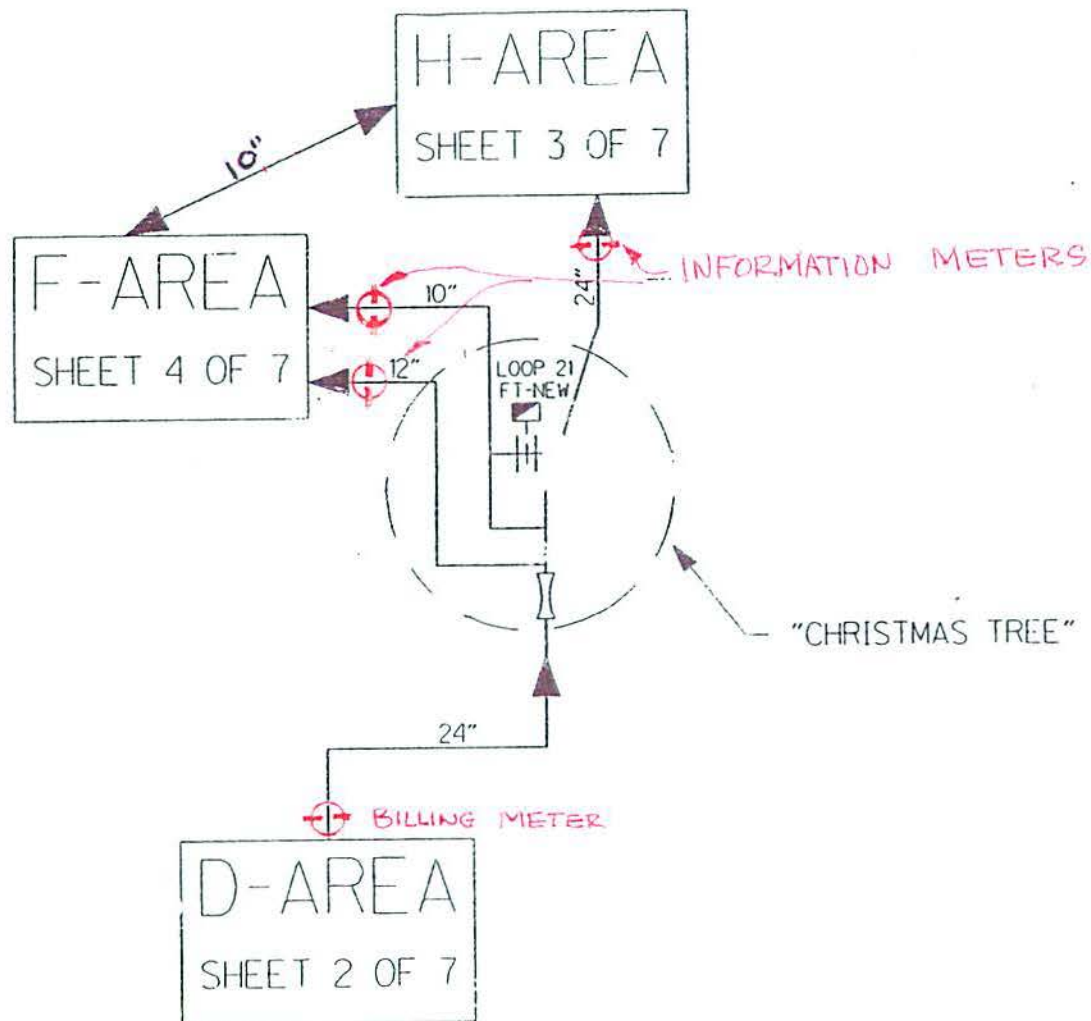 H-AREA
SHEET 3 OF 7
10"
F-AREA
SHEET 4 OF 7
INFORMATION METERS
24"
10"
12"
LOOP 21
FT-NEW
"CHRISTMAS TREE"
24"
BILLING METER
D-AREA
SHEET 2 OF 7